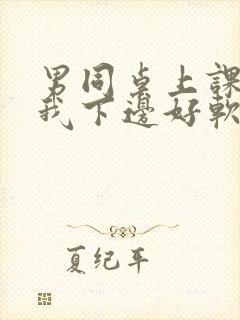 男同桌上課
我下邊好軟
夏纪年